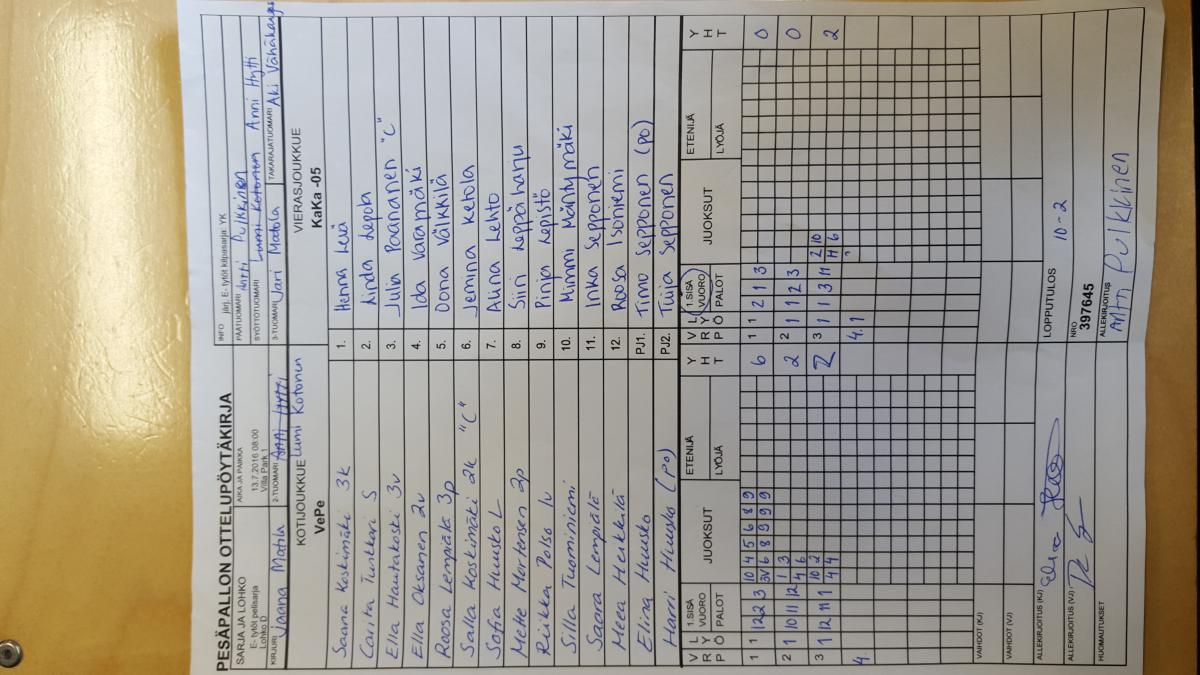 PESÄPALLON OTTELUPÖYTÄKIRJA
INFO järj. E- tytöt kilpasarja: YK
SARJA JA LOHKO
E- tytöt pelisarja
Lohko D
AIKA JA PAIKKA
13.7.2016 08:00
Villa Park 1
PÄÄTUOMARI Antti Pulkkinen
SYÖTTÖTUOMARI Lumi Kotonen Anni Hytti
KIRJURI Jaana Matila
2-TUOMARI Anni Hytti Lumi Kotonen
3-TUOMARI Jari Matila
TAKARAJATUOMARI Aki Vähäkangas
KOTIJOUKKUE
VePe
VIERASJOUKKUE
KaKa -05
Saana Koskimäki 3k 1. Henna Levä
Carita Tunkkari S 2. Linda Lepola
Ella Hautakoski 3v 3. Julia Paananen "C"
Ella Oksanen 2v 4. Ida Varamäki
Roosa Lempiälä 3p 5. Oona Välkkilä
Salla Koskimäki 2k "C" 6. Jemina Ketola
Sofia Huusko L 7. Alina Lehto
Mette Mortensen 2p 8. Siiri Leppäharju
Riikka Polso 1v 9. Pinja Lepistö
Silla Tuominiemi 10. Mimmi Mäntymäki
Saara Lempiälä 11. Inka Sepponen
Meea Heikkilä 12. Roosa Isoniemi
Elina Huusko PJ1. Timo Sepponen (po)
Harri Huusko (po) PJ2. Tuija Sepponen
VRP LYÖ 1.SISÄ VUORO PALOT JUOKSUT ETENIJÄ LYÖJÄ YHT VRP LYÖ 1.SISÄ VUORO PALOT JUOKSUT ETENIJÄ LYÖJÄ YHT
1 1 12 2 3 10 4 5 6 8 9 6 1 1 2 1 3 0
3V 6 8 9 9 9
2 1 10 11 12 1 3 2 2 1 1 2 3 0
4 6
3 1 12 11 1 10 2 2 3 1 1 3 11 2 10 2
4 4 H 6
4. 4. 1
VAIHDOT (KJ)
VAIHDOT (VJ)
ALLEKIRJOITUS (KJ)
LOPPUTULOS 10-2
ALLEKIRJOITUS (VJ)
NRO
397645
HUOMAUTUKSET
ALLEKIRJOITUS
Antti Pulkkinen